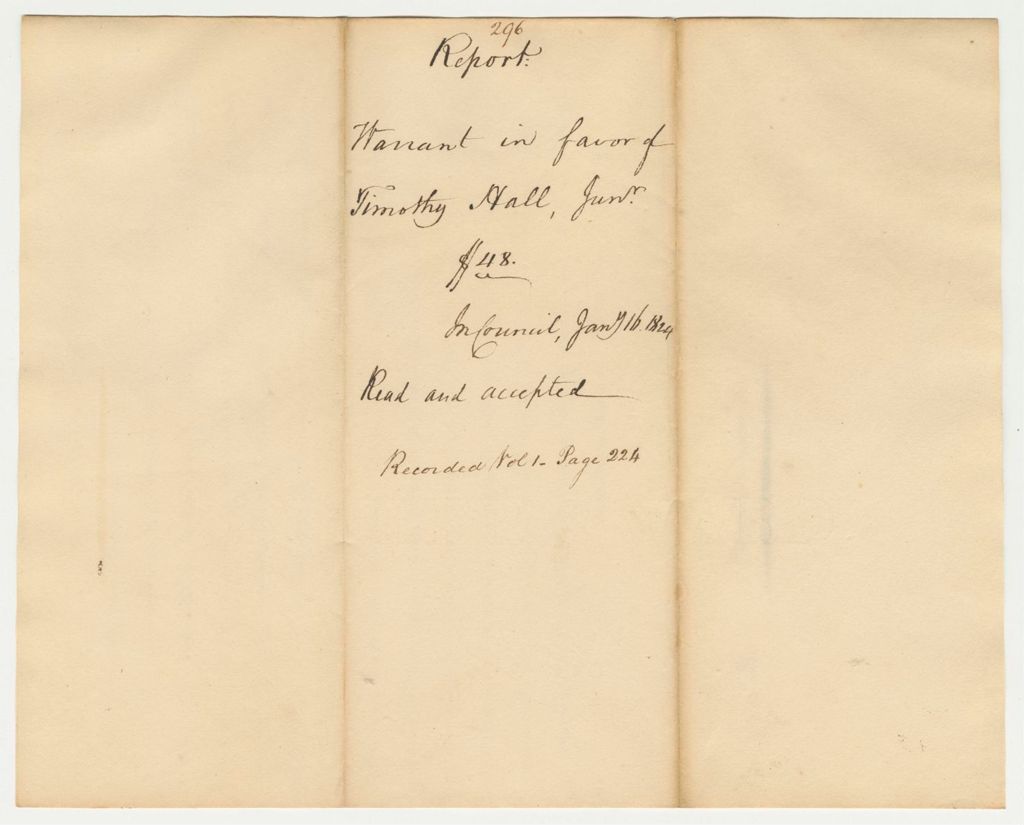 296
Report:
Warrant in favor of
Timothy Hall, Junr.
$48.
In Council, Jany 16. 1824
Read and accepted
Recorded Vol 1 - Page 224